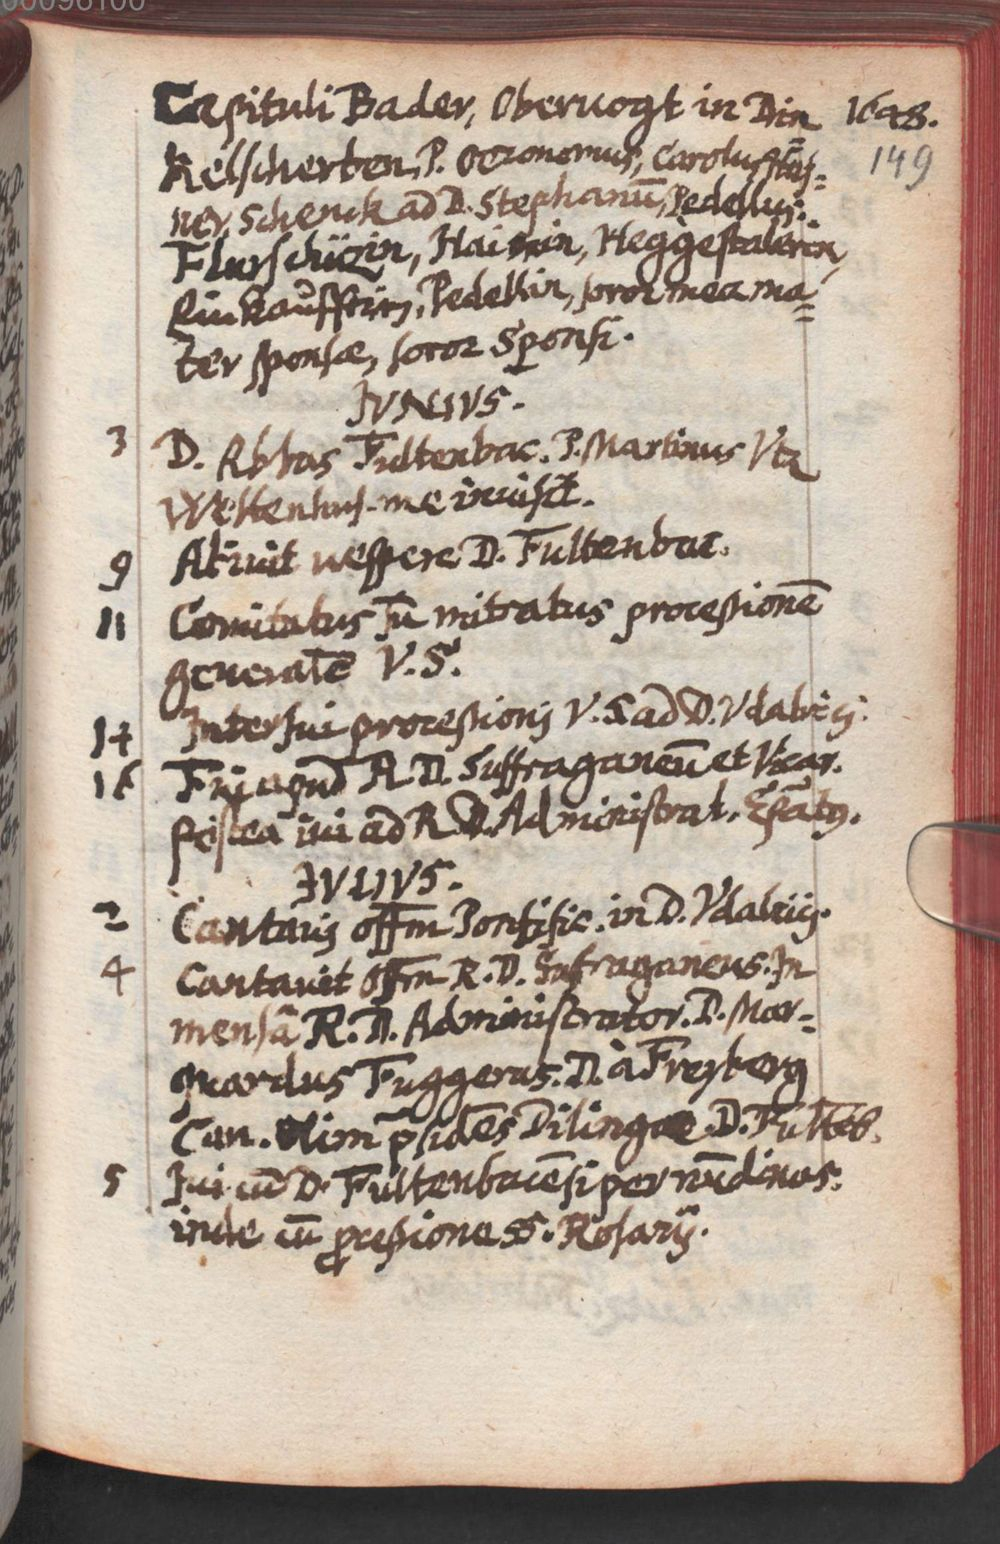 00096100
Capituli Bader, Obervogt in Din 1648.
149
kelscherben, P. Oeconomus, Carolus
ner, Schenck ad D. Stephanū, Pedellus:
Flurschüzin, Haimin, Heggestalerin,
Pedellin, soror mea ma
ter sponsæ, soror Sponsi.
JVNIVS.
3 D. Abbas Fultenbac. P. Martinus Vtz
Weltenhus. me invisit.
9 Abiuit vespere D. Fultenbac.
11 Comitatus sū mitratus processionē
generalē V. S.
14 Interfui processionj V. S. ad D. Vdalricj.
16 Fui apud R. D. Suffraganeū et Vicar.
postea iui ad R. D. Administrat. Epātus.
JVLIVS.
2 Cantauj offm Pontific. in D. Vdalricj.
4 Cantauit offm R. D. Sufraganeus. In
mensâ R. D. Administrator. D. Mar-
quardus Fuggerus. D. à Freyberg
Can. Olim p̄sidēs Dilingae D. Fultēb.
5 Iui cū D. Fultenbacēsi per nūdinas.
inde cū processione SS. Rosarij.